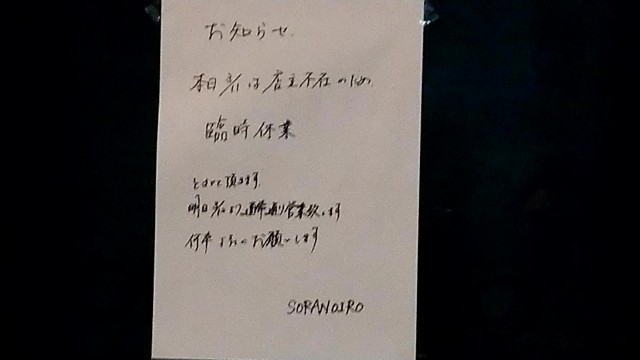 お知らせ.
本日8/1は店主不在のため
臨時休業
とさせて頂きます.
明日8/2より通常通り営業致します
何卒よろしくお願いします
SORANOIRO